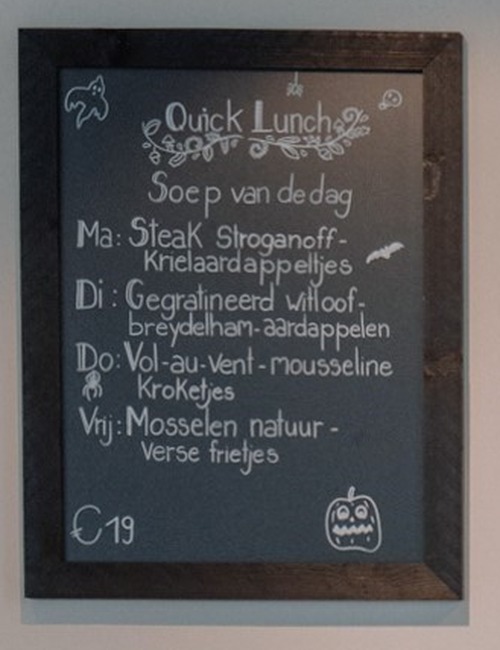 Quick Lunch
Soep van de dag
Ma: Steak Stroganoff-
Krielaardappeltjes
Di: Gegratineerd witloof-
breydelham-aardappelen
Do: Vol-au-vent-mousseline
Kroketjes
Vrij: Mosselen natuur -
Verse frietjes
€19